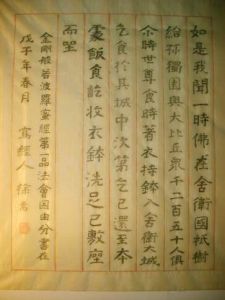 如是我聞一時佛在舍衛國祇樹
給孤獨園與大比丘眾千二百五十人俱
尒時世尊食時著衣持鉢入舍衛大城
乞食於其城中次第乞已還至本
處飯食訖收衣鉢洗足已敷座
而坐
金剛般若波羅蜜經第一品法會因由分書在
戊子年春月 寫經人徐